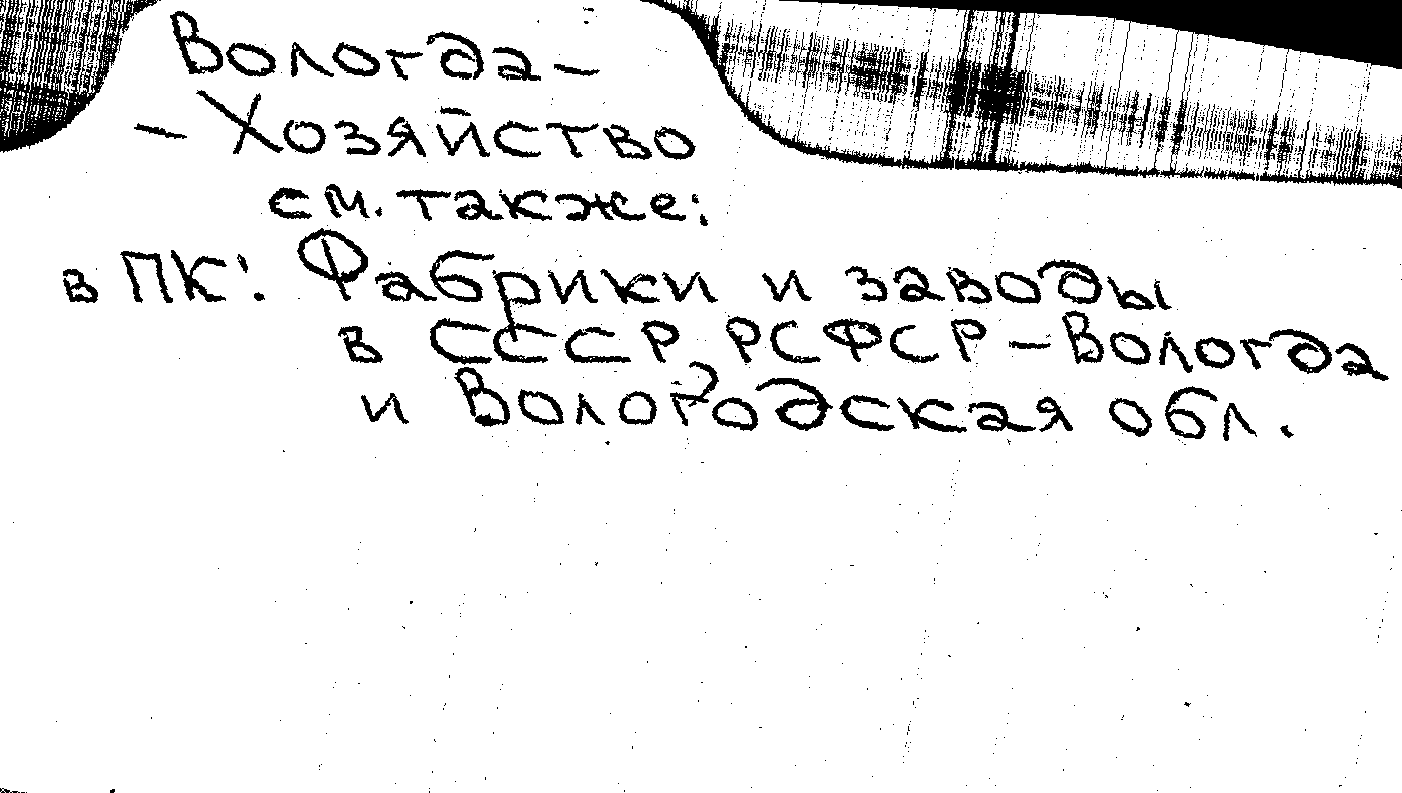 Вологда –
– Хозяйство
см. также:
в ПК: Фабрики и заводы
в СССР, РСФСР – Вологда
и Вологодская обл.